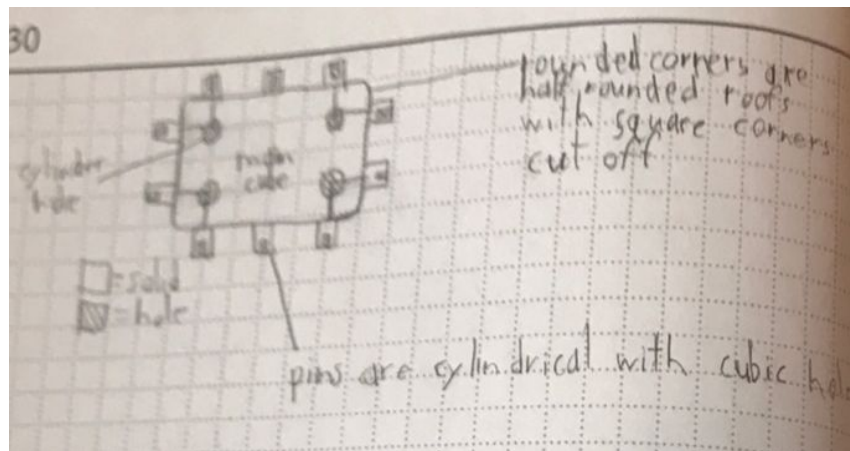 30
rounded corners are
half rounded roofs
with square corners
cut off
cylinder
hole
main
cube
= solid
= hole
pins are cylindrical with cubic